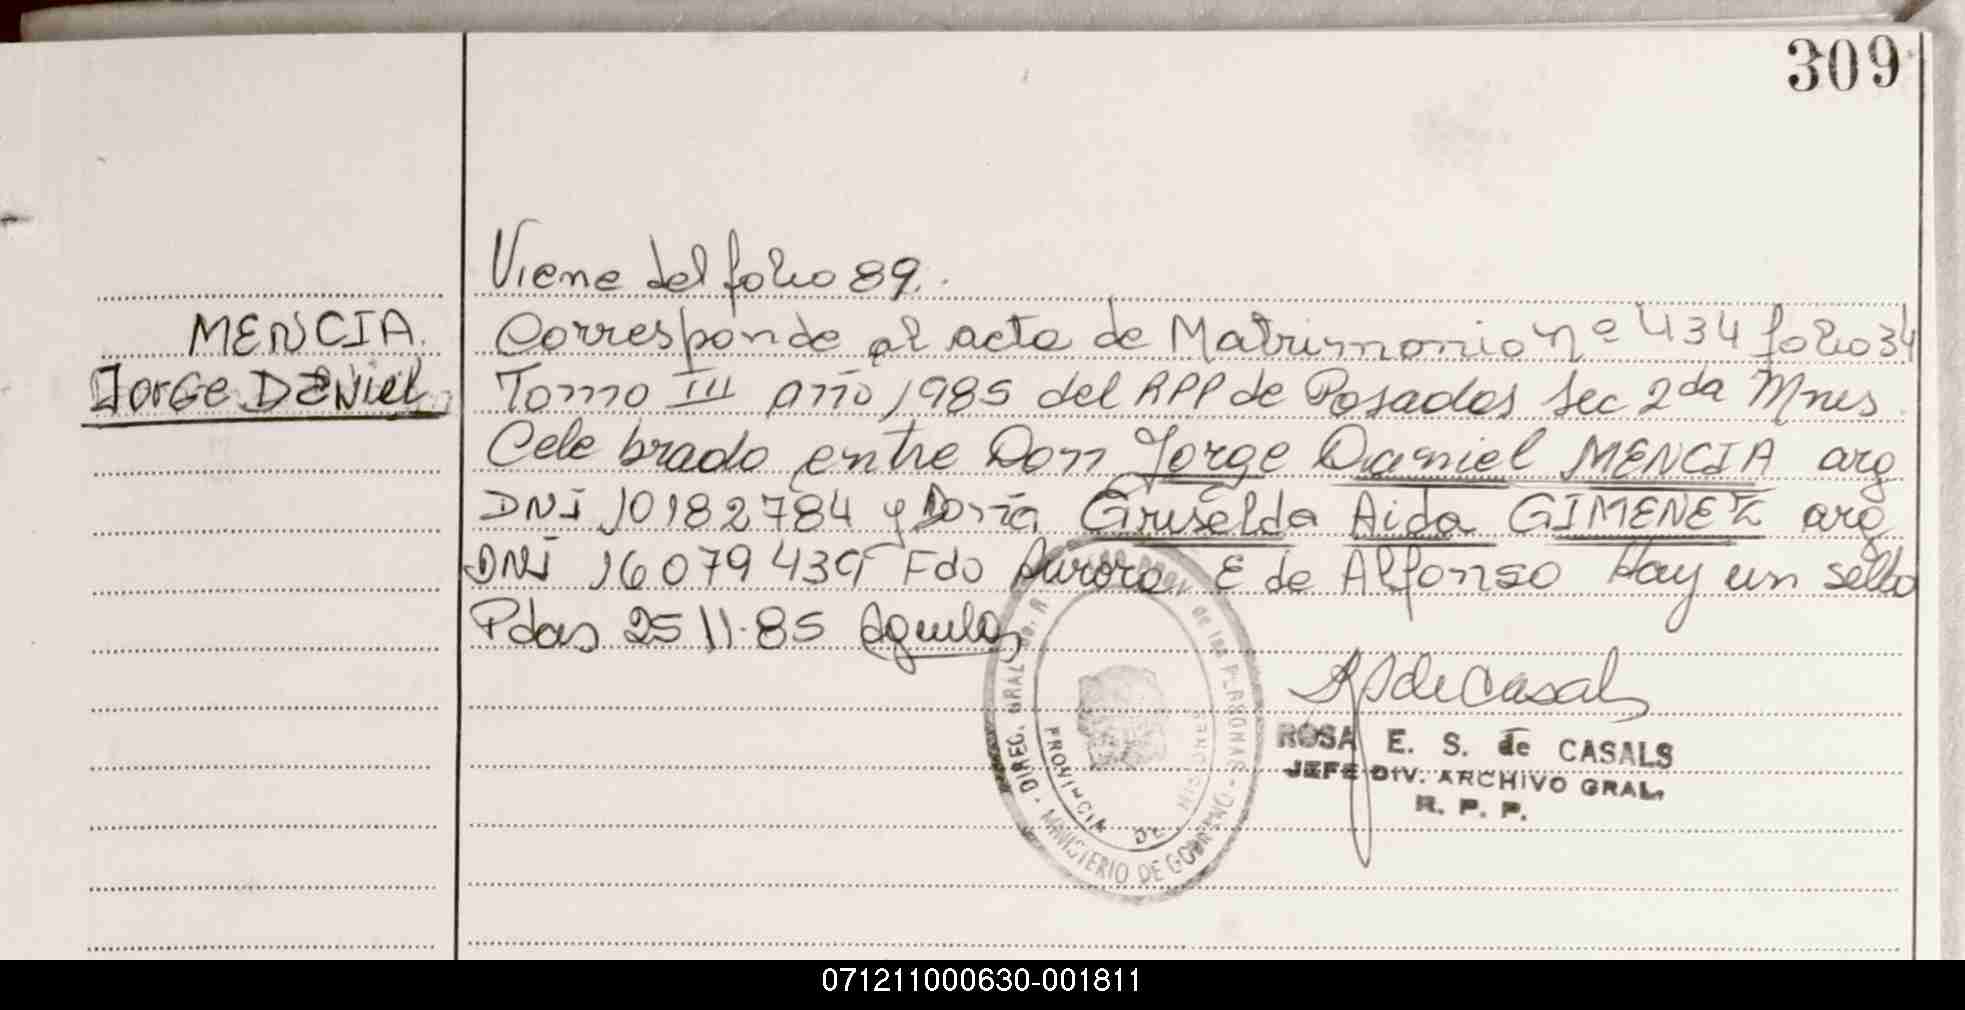 309
Viene del folio 89.
MENCIA.
Jorge Daniel
Corresponde al acta de Matrimonio nº 434 folio 34
Tomo III año 1985 del RPP de Posadas Sec 2da Mnes.
Celebrado entre Don Jorge Daniel MENCIA arg
DNI 10182784 y Doña Griselda Aida GIMENEZ arg
DNI 16079439 Fdo Aurora E de Alfonso Hay un sello
Pdas 25 11·85
R S de Casals
ROSA E. S. de CASALS
JEFE DIV. ARCHIVO GRAL.
R. P. P.
DIREC. GRAL. de las PERSONAS - MINISTERIO DE GOBIERNO -
PROVINCIA DE MISIONES
071211000630-001811